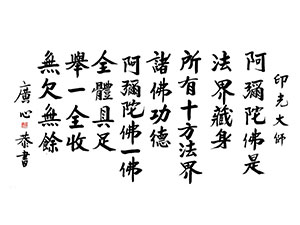 印光大師
阿彌陀佛是
法界藏身
所有十方法界
諸佛功德
阿彌陀佛一佛
全體具足
舉一全收
無欠無餘
廣心恭書